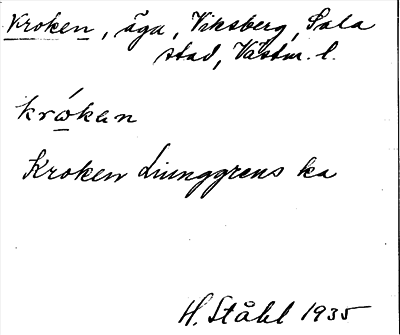 Kroken, äga, Viksberg, Sala
stad, Västm. l.
krókan
Kroken Liunggrens ka
H. Ståhl 1935